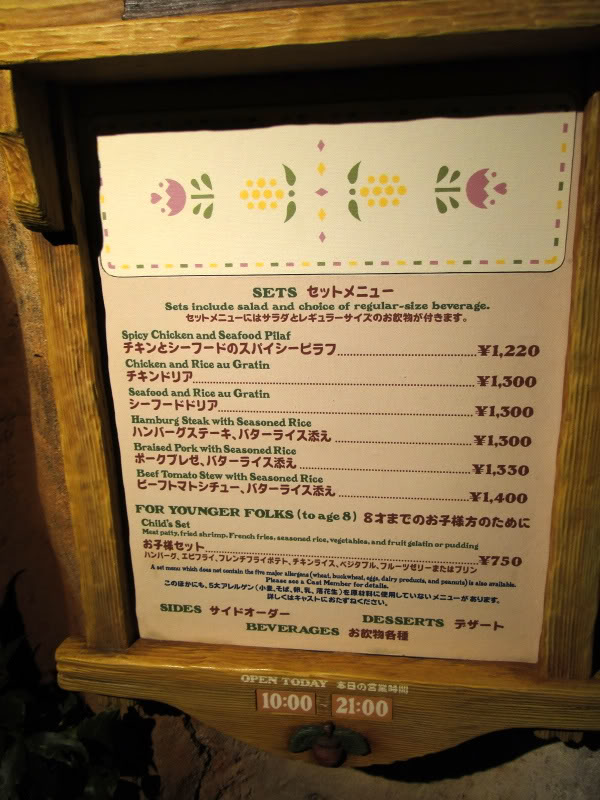 SETS セットメニュー
Sets include salad and choice of regular-size beverage.
セットメニューにはサラダとレギュラーサイズのお飲物が付きます。
Spicy Chicken and Seafood Pilaf
チキンとシーフードのスパイシーピラフ ¥1,220
Chicken and Rice au Gratin
チキンドリア ¥1,300
Seafood and Rice au Gratin
シーフードドリア ¥1,300
Hamburg Steak with Seasoned Rice
ハンバーグステーキ、バターライス添え ¥1,300
Braised Pork with Seasoned Rice
ポークブレゼ、バターライス添え ¥1,350
Beef Tomato Stew with Seasoned Rice
ビーフトマトシチュー、バターライス添え ¥1,400
FOR YOUNGER FOLKS (to age 8) 8才までのお子様方のために
Child's Set
Meat patty, fried shrimp, French fries, seasoned rice, vegetables, and fruit gelatin or pudding
お子様セット ¥750
ハンバーグ、エビフライ、フレンチフライポテト、チキンライス、ベジタブル、フルーツゼリーまたはプリン
A set menu which does not contain the five major allergens (wheat, buckwheat, eggs, dairy products, and peanuts) is also available.
Please see a Cast Member for details.
このほかにも、5大アレルゲン(小麦、そば、卵、乳、落花生)を原材料に使用していないメニューがあります。
詳しくはキャストにおたずねください。
SIDES サイドオーダー
DESSERTS デザート
BEVERAGES お飲物各種
OPEN TODAY 本日の営業時間
10:00 ~ 21:00